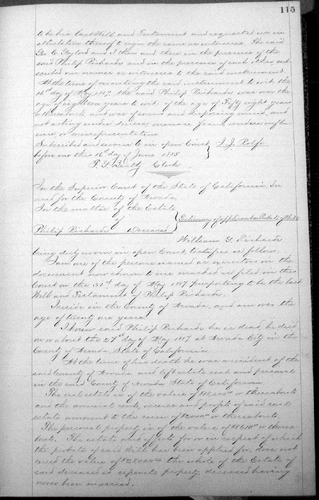 115
to be his last Will and Testament and requested us in
attestation thereof to sign the same as witnesses. The said
Geo. C. Gaylord and I then and there in the presence of the
said Philip Richards and in the presence of each other sub-
scribed our names as witnesses to the said instrument.
At the time of executing the said instrument to wit the
day of May 1897, the said Philip Richards was over the
age of eighteen years to wit of the age of Fifty eight years
or thereabouts, and was of sound and disposing mind, and
not acting under duress, menace, fraud, undue influ-
ence, or misrepresentation.
Subscribed and sworn to in open Court
before me this day of June
J. J. Rolfe
Clerk
In the Superior Court of the State of California In
and for the County of Nevada.
In the matter of the Estate
of
Philip Richards Deceased
Testimony of applicant Probate of Will
William G. Richards
being duly sworn in open Court, testifies as follows:
I am one of the persons named as executors in the
document now shown to me marked as filed in this
Court on the day of May 1897 purporting to be the last
Will and Testament of Philip Richards.
I reside in the County of Nevada, and am over the
age of twenty one years.
I knew said Philip Richards he is dead, he died
on or about the day of May 1897 at Nevada City in the
County of Nevada, State of California
At the time of his death he was a resident of the
said County of Nevada and left estate real and personal
in the said County of Nevada State of California
The real estate is of the value of or thereabouts
and the annual rents, issues and profits of said real
estate amount to the sum of or thereabouts.
The personal property is of the value of or there
abouts. The estate and effects for or in respect of which
the probate of said Will has been applied for, does not
exceed the value of the whole of the Estate of
said deceased is separate property, deceased having
never been married.